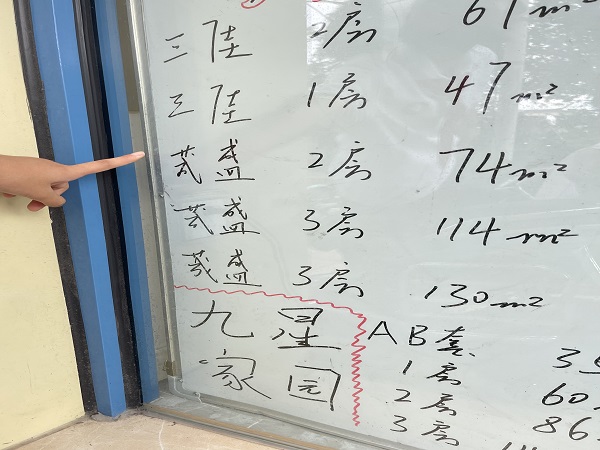 三陆 2房 61m²
三陆 1房 47m²
茂盛 2房 74m²
茂盛 3房 114m²
茂盛 3房 130m²
九星
家园
AB套
1房 35
2房 60
3房 86